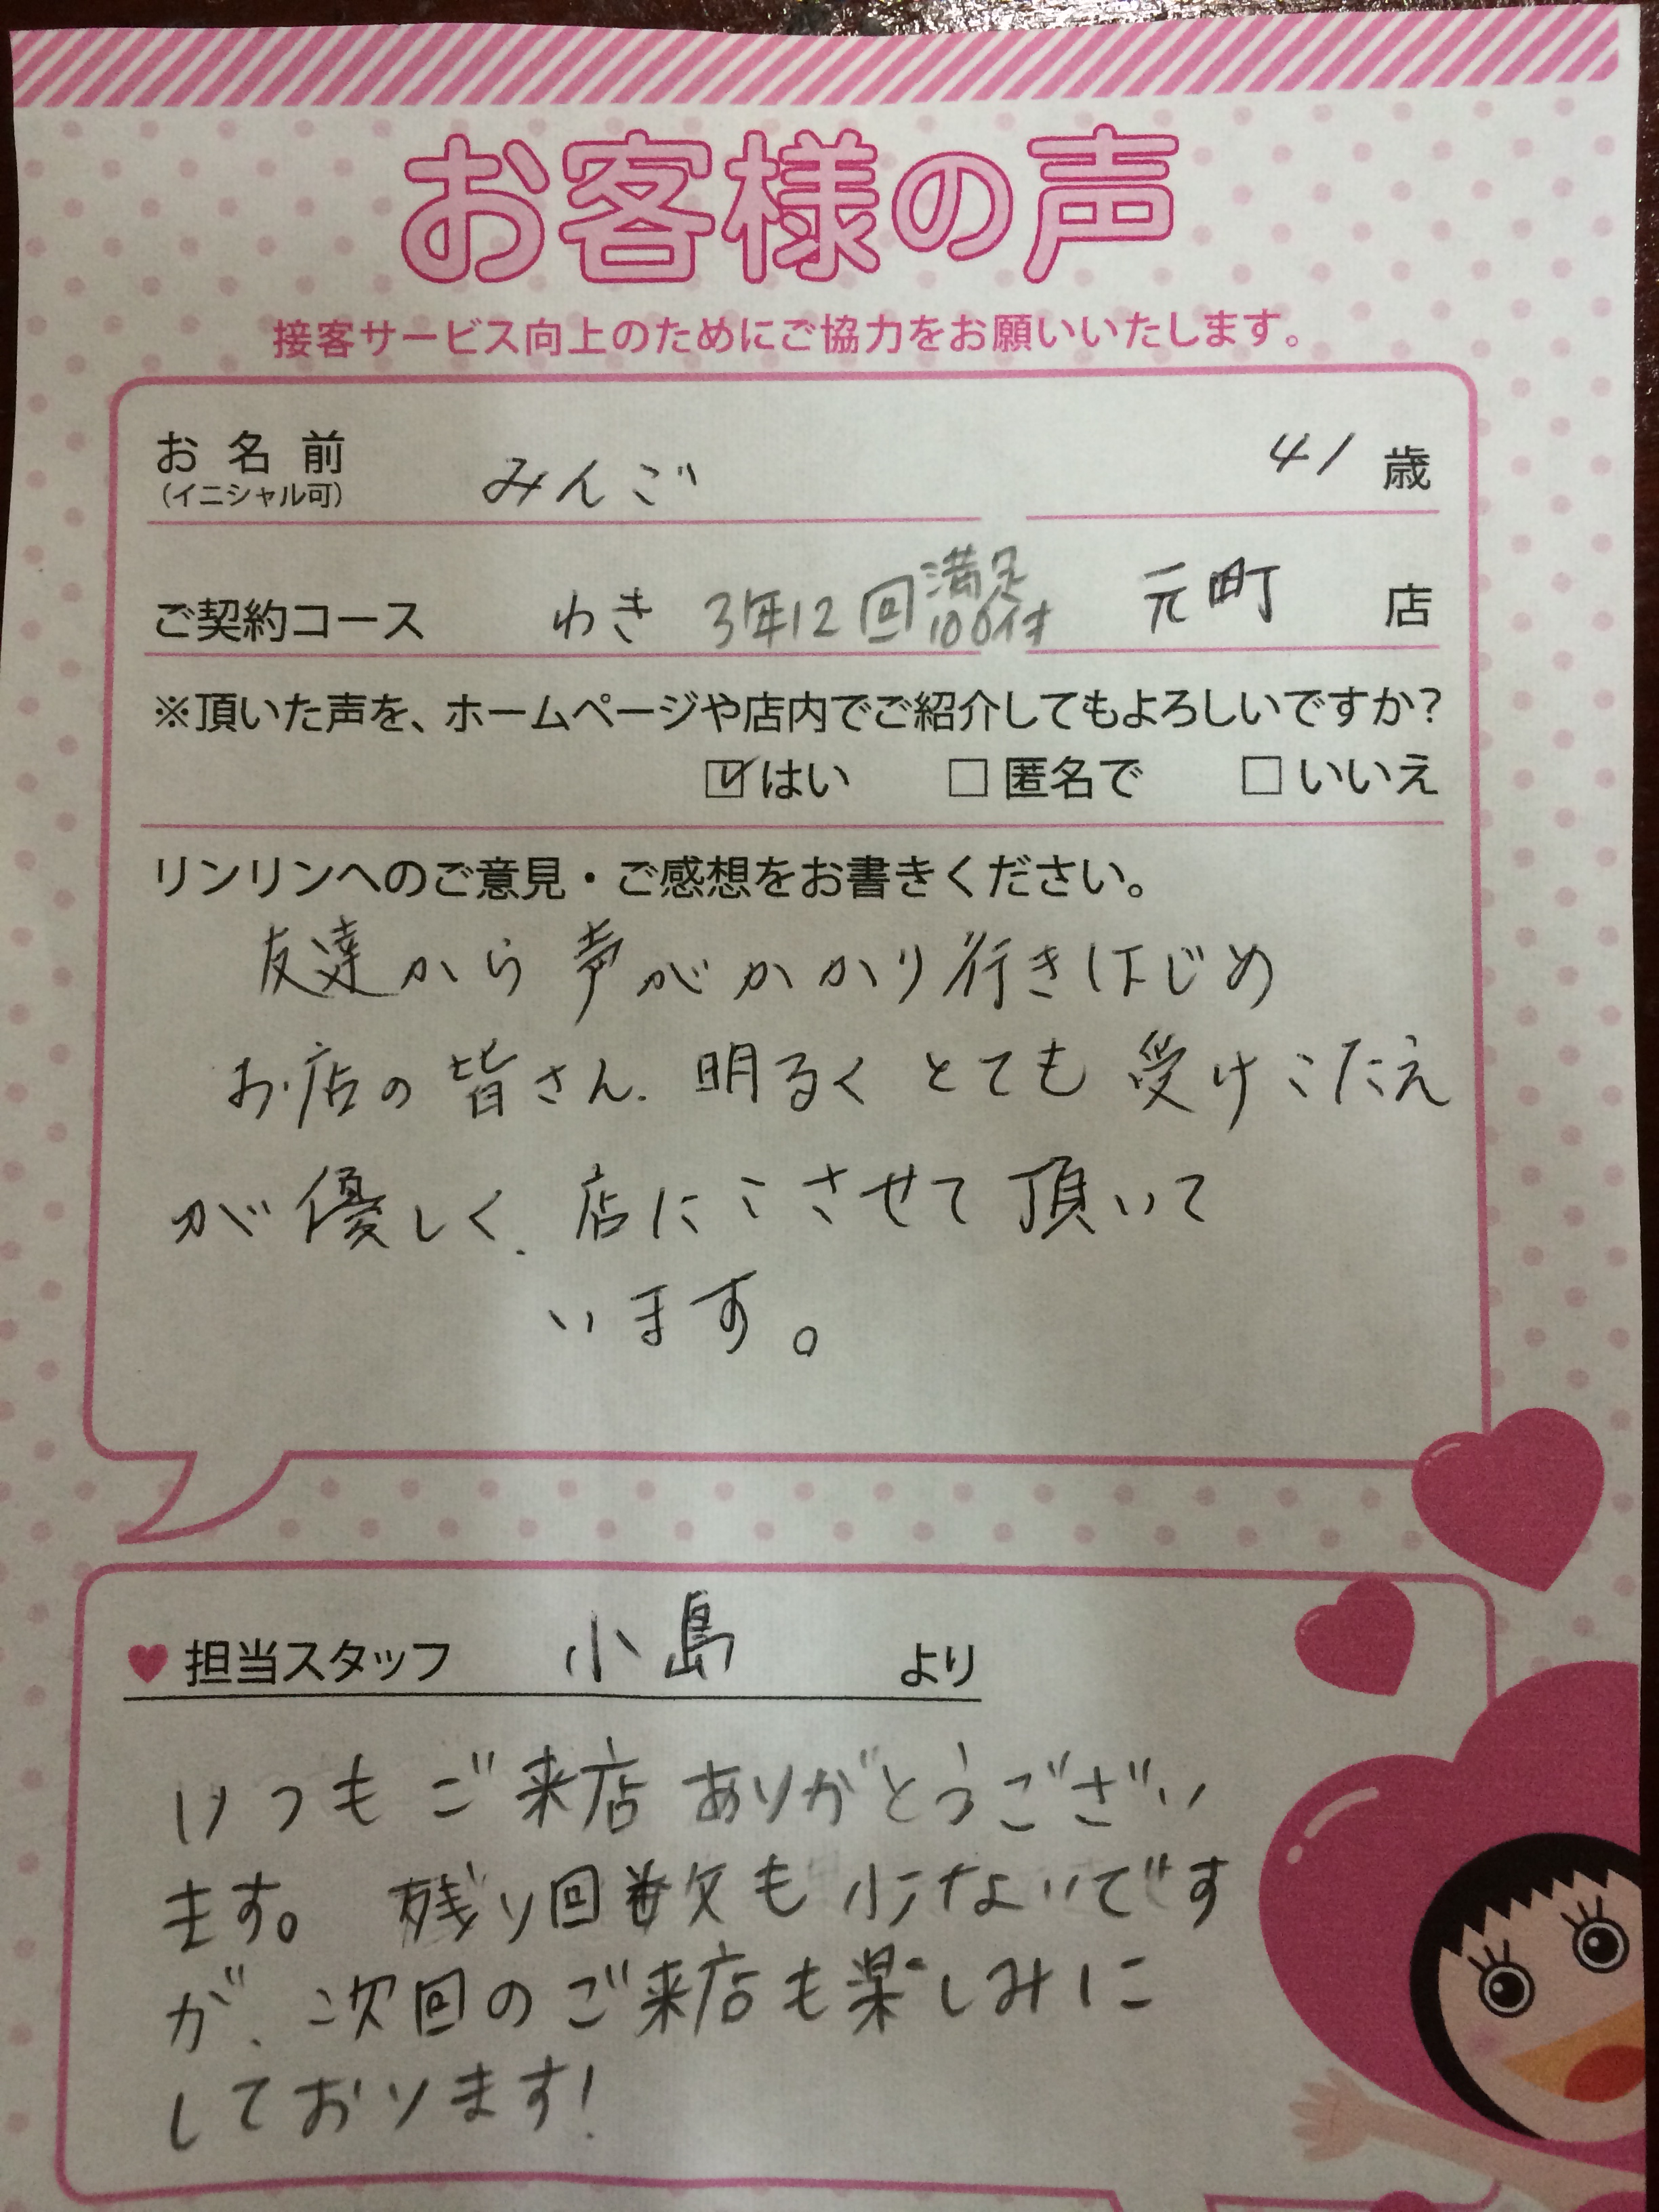 お客様の声
接客サービス向上のためにご協力をお願いいたします。
お名前 みんご 41 歳
（イニシャル可）
ご契約コース わき 3年12回 満足100付 元町 店
※頂いた声を、ホームページや店内でご紹介してもよろしいですか？
☑はい □匿名で □いいえ
リンリンへのご意見・ご感想をお書きください。
友達から声がかかり行きはじめ
お店の皆さん、明るくとても受けこたえ
が優しく、店にこさせて頂いて
います。
♥担当スタッフ 小島 より
いつもご来店ありがとうござい
ます。 残り回数も少ないです
が、次回のご来店も楽しみに
しております！